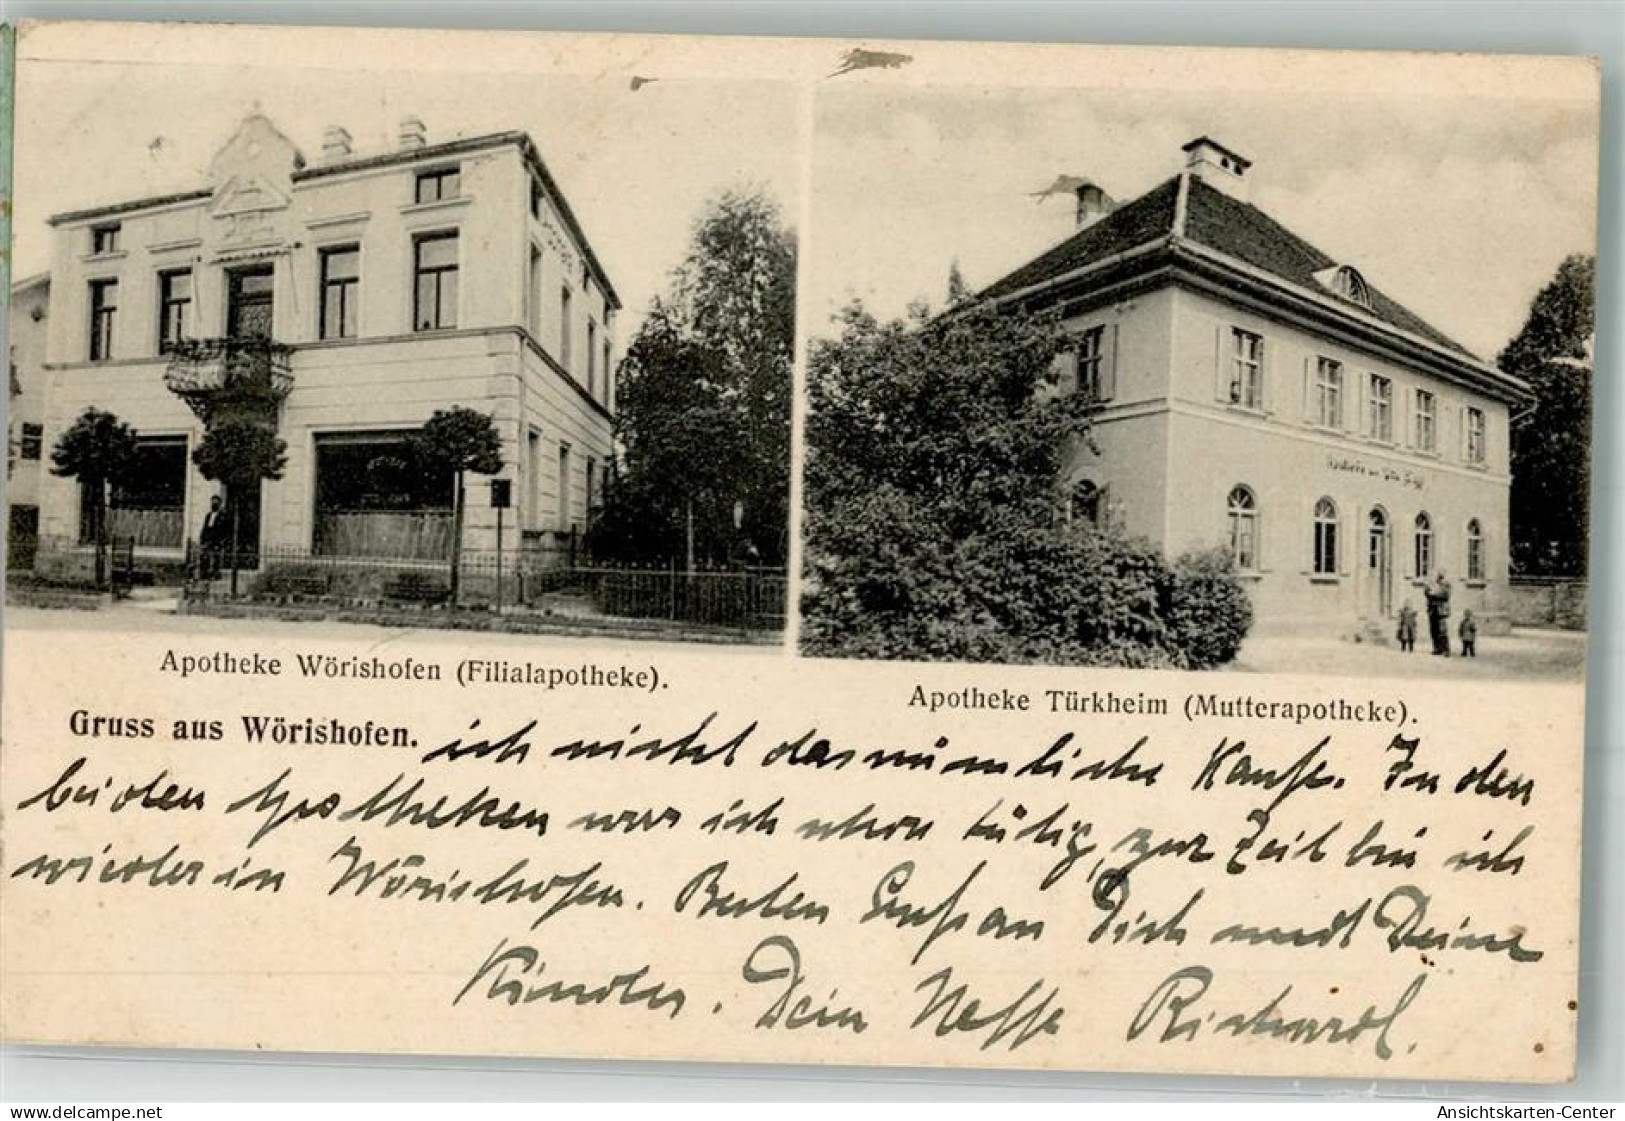 Apotheke Wörishofen (Filialapotheke).
Apotheke Türkheim (Mutterapotheke).
Gruss aus Wörishofen.
ich nicht das nämliche kaufe. In den
beiden Apotheken war ich schon tätig, zur Zeit bin ich
wieder in Wörishofen. Besten Gruß an Dich und Deine
Kinder. Dein Neffe Richard.
www.delcampe.net
Ansichtskarten-Center